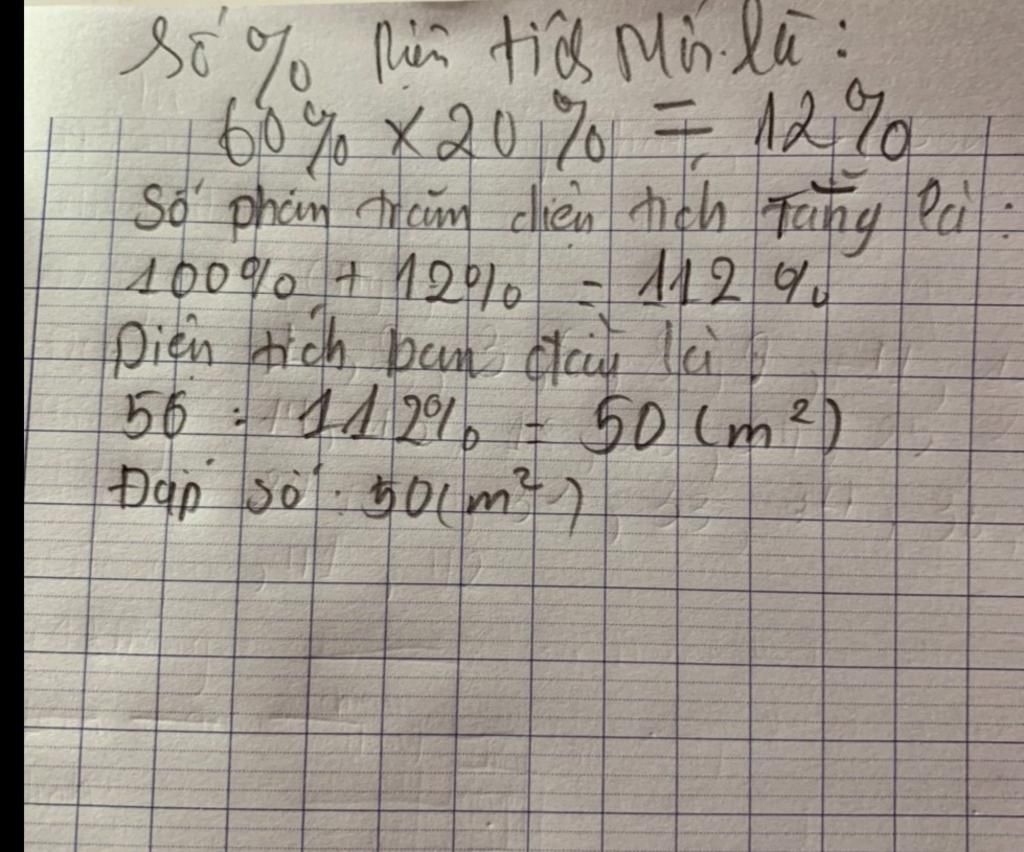 Số % diện tích mới là:
60% x 20% = 12%
Số phần trăm diện tích Tăng là:
100% + 12% = 112%
Diện tích ban đầu là:
56 : 112% = 50 (m²)
Đáp số: 50(m²)